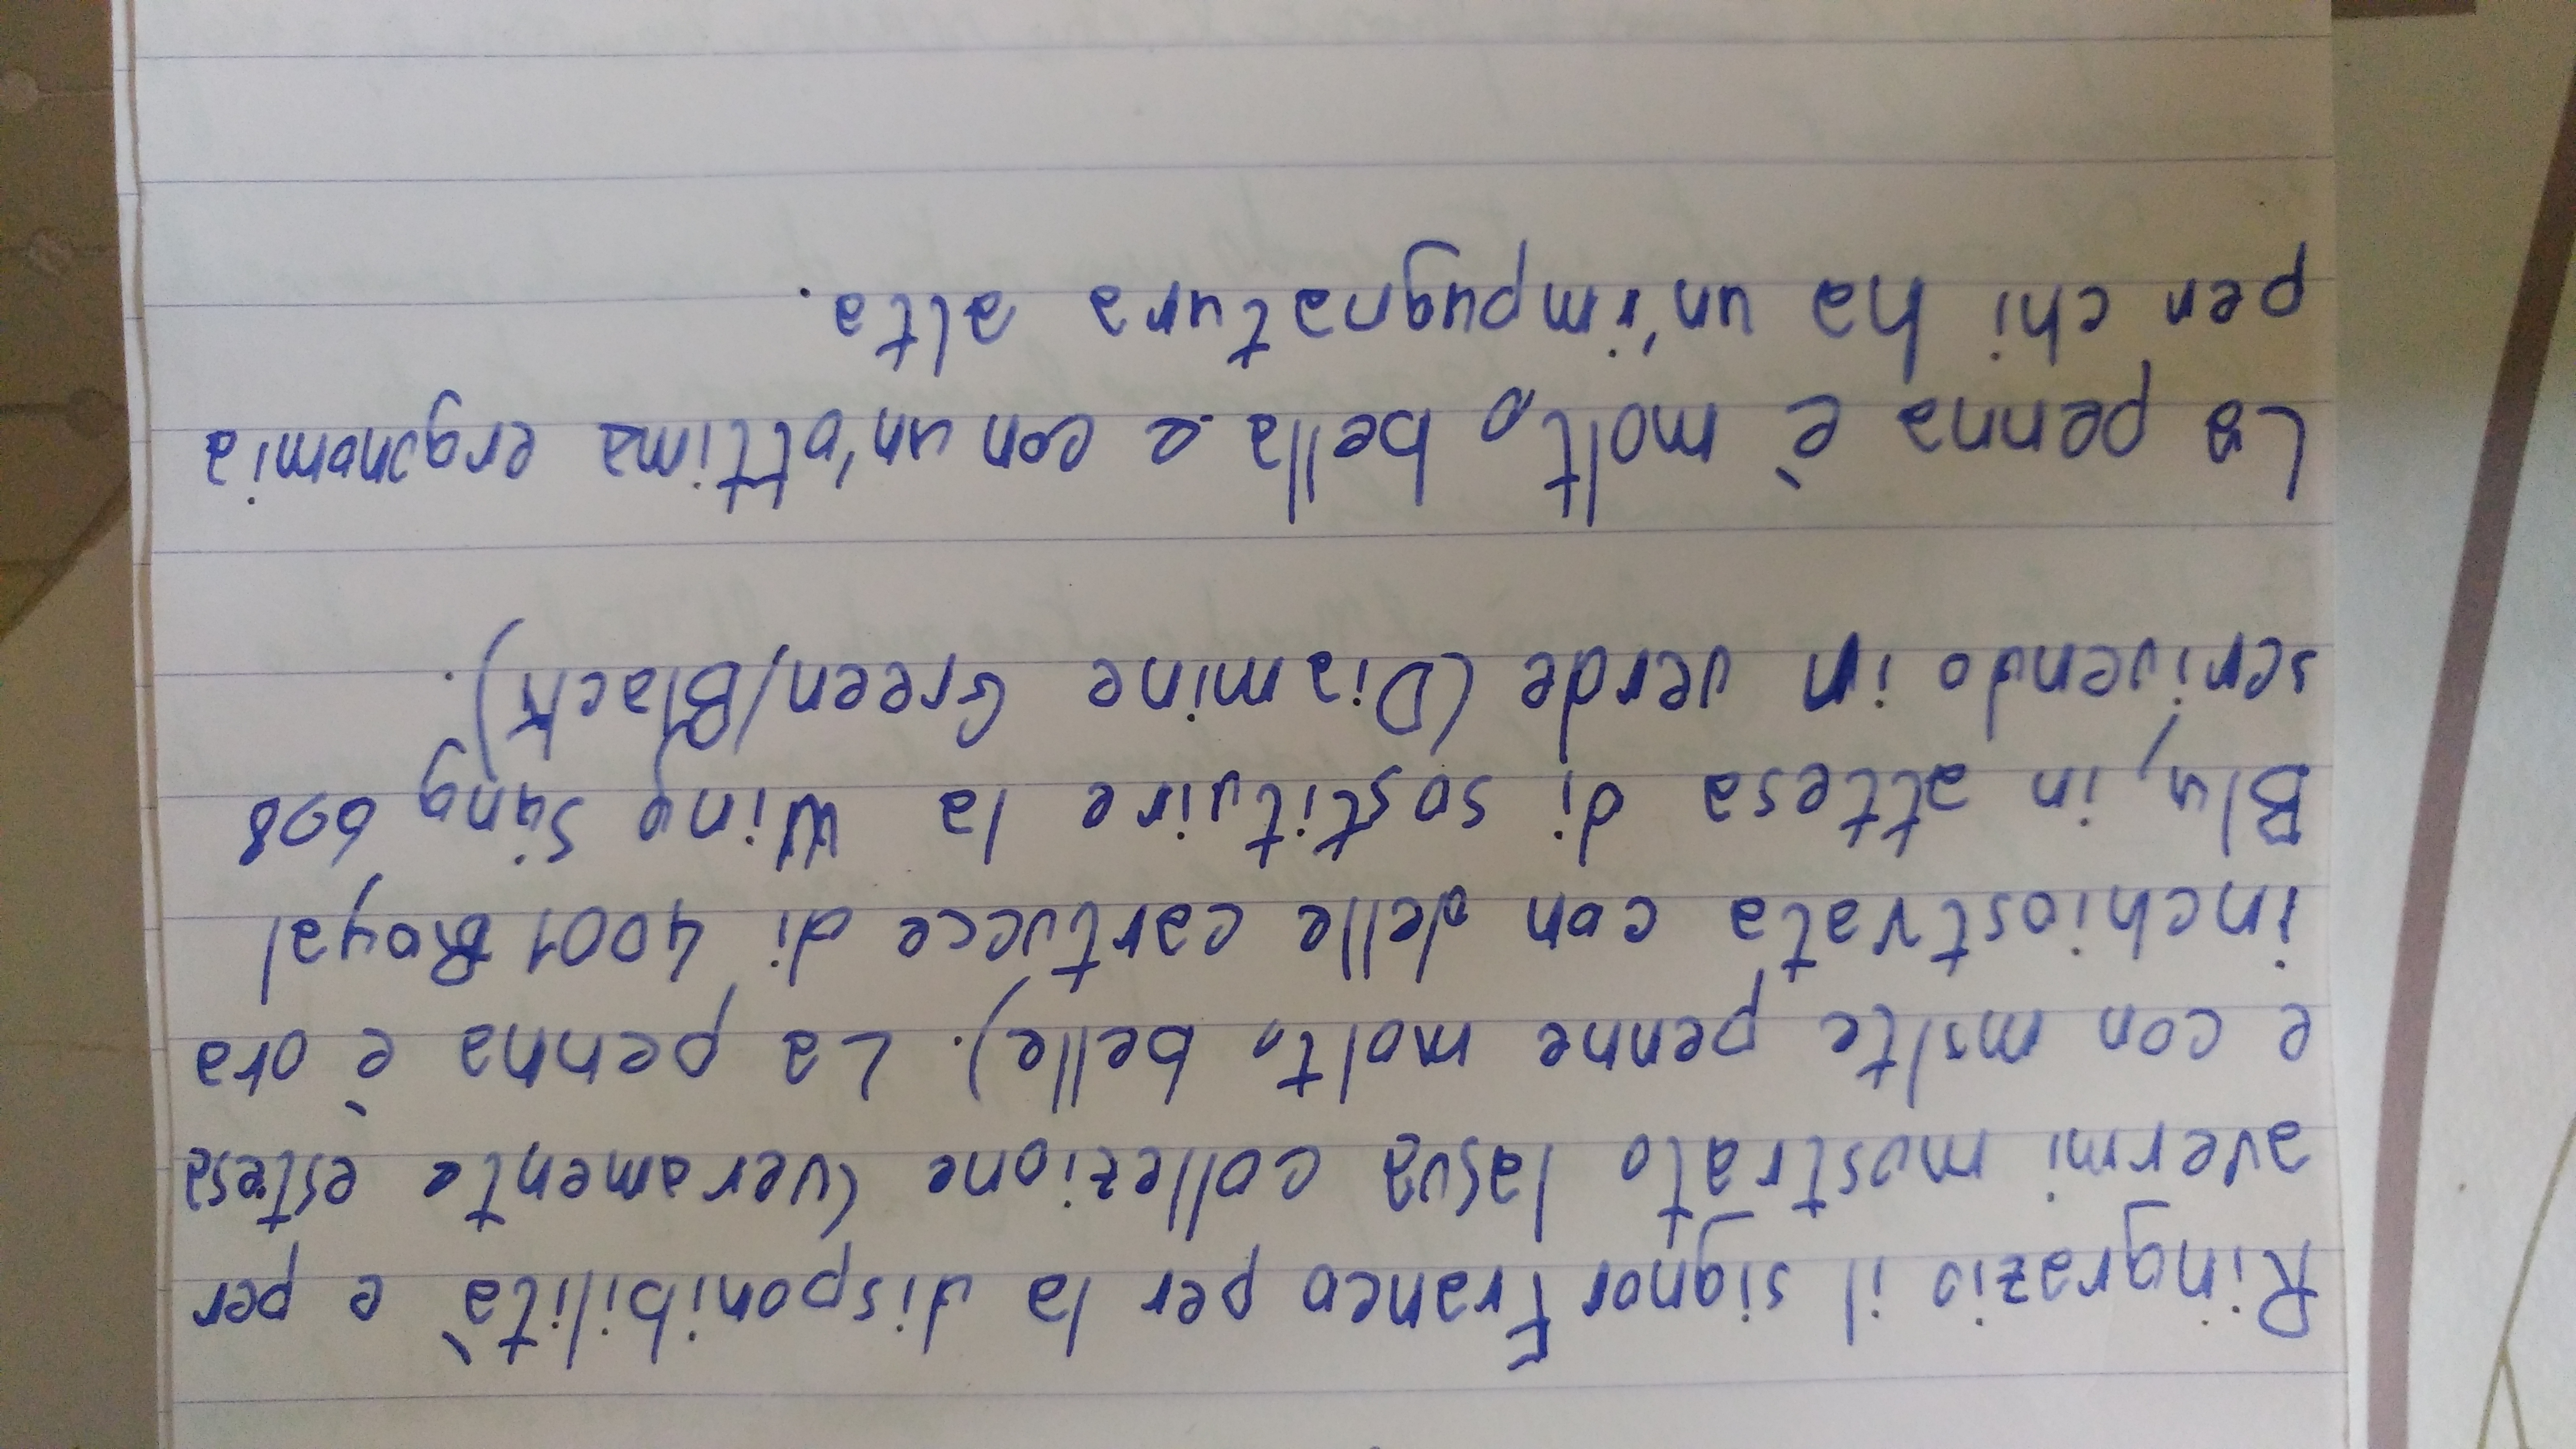 Ringrazio il signor Franco per la disponibilità e per
avermi mostrato la sua collezione (veramente estesa
e con molte penne molto belle). La penna è ora
inchiostrata con delle cartucce di 4001 Royal
Blu, in attesa di sostituire la Wing Sung 698
scrivendo in verde (Diamine Green/Black).
La penna è molto bella e con un'ottima ergonomia
per chi ha un'impugnatura alta.